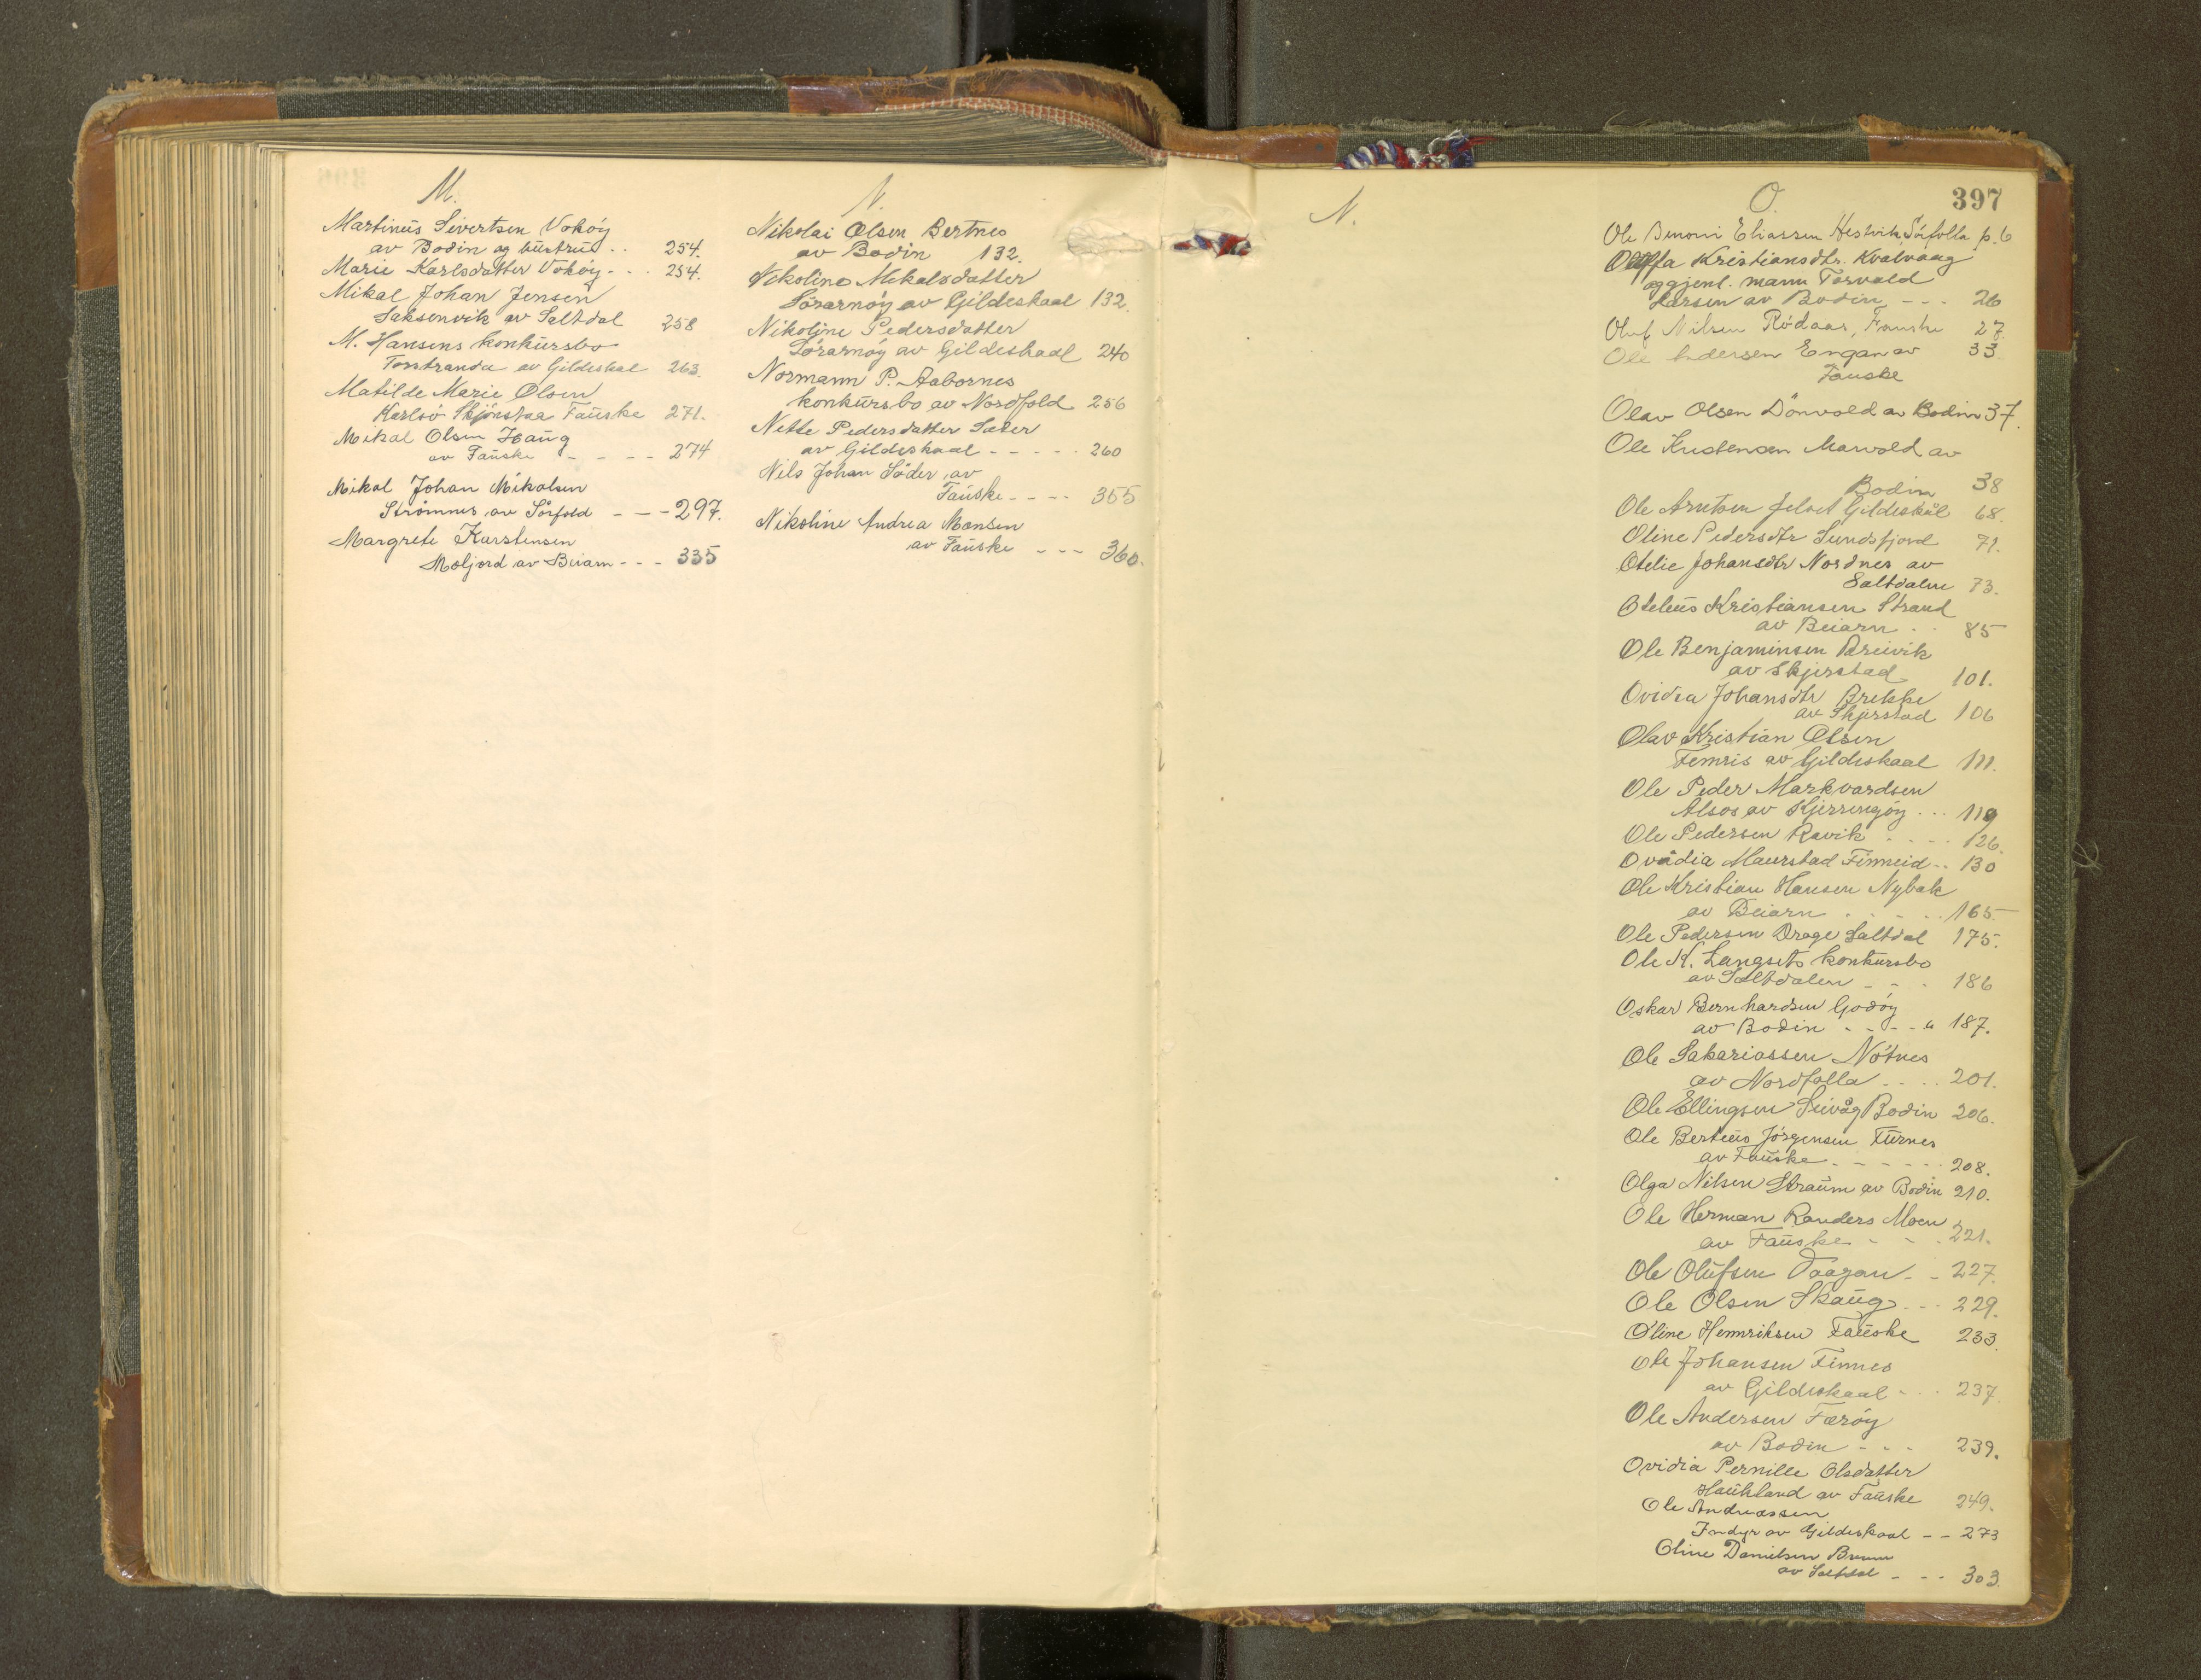 M.
Martinus Sivertsen Vokøy
av Bodin og hustru . . 254.
Marie Karlsdatter Vokøy - . . 254.
Mikal Johan Jensen
Saksenvik av Saltdal 258
M. Hansens konkursbo
Forstranda av Gildeskal 263.
Matilde Marie Olsen
Karlsö Skjönstaa Fauske 271.
Mikal Olsen Haug
av Fauske - - - - 274
Mikal Johan Mikalsen
Strømnes av Sørfold - - - 297.
Margrete Karstensen
Moljord av Beiarn - - - 335
N.
Nikolai Olsen Bertnes
av Bodin 132.
Nikoline Mikalsdatter
Sörarnöy av Gildeskaal 132.
Nikoline Pedersdatter
Sörarnöy av Gildeskaal 240
Normann P. Aabornes
konkursbo av Nordfold 256
Nette Pedersdatter Sæter
av Gildeskaal - - - - - 260
Nils Johan Söder av
Fauske - - - - 355
Nikoline Andrea Monsen
av Fauske - - - 360.
N.
O.
397
Ole Benoni Eliassen Hestvik, Sörfolla p. 6
Kristiansdtr. Kvalvaag
og gjenl. mann Torvald
Larsen av Bodin - - - 26
Oluf Nilsen Rödaas, Fauske 27.
Ole Andersen Engan av 33
Fauske
Olav Olsen Dönvold av Bodin 37.
Ole Kristensen Marvold av
Bodin 38
Ole Arntsen Gildeskål 68.
Oline Pedersdtr Sundsfjord 71.
Otelie Johansdtr Nordnes av
Saltdalen 73.
Oteleus Kristiansen Strand
av Beiarn . . 85
Ole Benjaminsen Breivik
av Skjerstad 101.
Ovidia Johansdtr Brekke
av Skjerstad 106
Olav Kristian Olsen
Femris av Gildeskaal 111.
Ole Peder Markvardsen
Alsos av Kjerringöy . . . 119
Ole Pedersen Ravik . - - - 126.
Ovidia Maurstad Finneid - . 130
Ole Kristian Hansen Nybak
av Beiarn . . - - . . 165.
Ole Pedersen Drage Saltdal 175.
Ole K. Langsets konkursbo
av Saltdalen - - . 186
Oskar Bernhardsen Godöy
av Bodin - - - - " 187.
Ole Sakariassen Nötnes
av Nordfolla - - . . 201.
Ole Ellingsen Seivåg Bodin 206.
Ole Berteus Jörgensen Furnes
av Fauske - - - - - - 208.
Olga Nilsen Straum av Bodin 210.
Ole Herman Randers Moen
av Fauske - - - . 221.
Ole Olufsen Vaagan - - 227.
Ole Olsen Skaug - - - 229.
Oline Hennriksen Fauske 233.
Ole Johansen Finnes
av Gildeskaal - - . 237
Ole Andersen Færöy
av Bodin - - - 239.
Ovidia Pernille Olsdatter
Haukland av Fauske 249.
Ole Andreassen
Inndyr av Gildeskaal - - 273
Oline Danielsen
av Saltdal - - - 303.